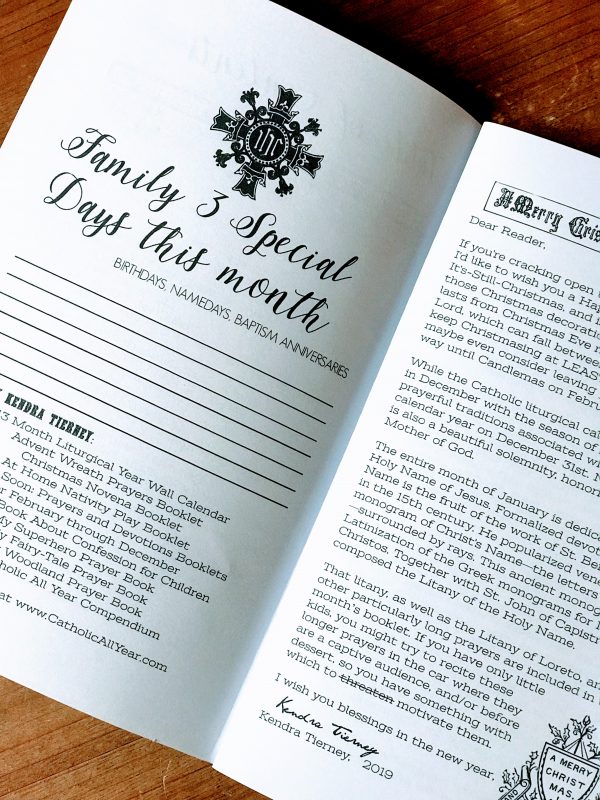 ihc
Family & Special
Days this month
BIRTHDAYS, NAMEDAYS, BAPTISM ANNIVERSARIES
KENDRA TIERNEY:
3 Month Liturgical Year Wall Calendar
Advent Wreath Prayers Booklet
Christmas Novena Booklet
At Home Nativity Play Booklet
Soon: Prayers and Devotions Booklets
February through December
Book About Confession for Children
My Superhero Prayer Book
Fairy-Tale Prayer Book
Woodland Prayer Book
Catholic All Year Compendium
at www.CatholicAllYear.com
A Merry
Dear Reader,
If you're cracking open
I'd like to wish you a
It's-Still-Christmas, and
those Christmas
lasts from Christmas Eve
Lord, which can fall between
keep Christmasing at LEAS
maybe even consider leaving
way until Candlemas on
While the Catholic liturgical
in December with the season of
prayerful traditions associated
calendar year on December 31st.
is also a beautiful solemnity,
Mother of God.
The entire month of January is
Holy Name of Jesus. Formalized
Name is the fruit of the work of St.
in the 15th century. He popularized
monogram of Christ's Name—the letters
—surrounded by rays. This ancient
Latinization of the Greek monograms for
Christos. Together with St. John of
composed the Litany of the Holy Name.
That litany, as well as the Litany of Loreto,
other particularly long prayers are included in
month's booklet. If you have only little
kids, you might try to recite these
longer prayers in the car where they
are a captive audience, and/or before
dessert, so you have something with
which to threaten motivate them.
I wish you blessings in the new year,
Kendra Tierney
Kendra Tierney, 2019
A MERRY
CHRIST
MAS,